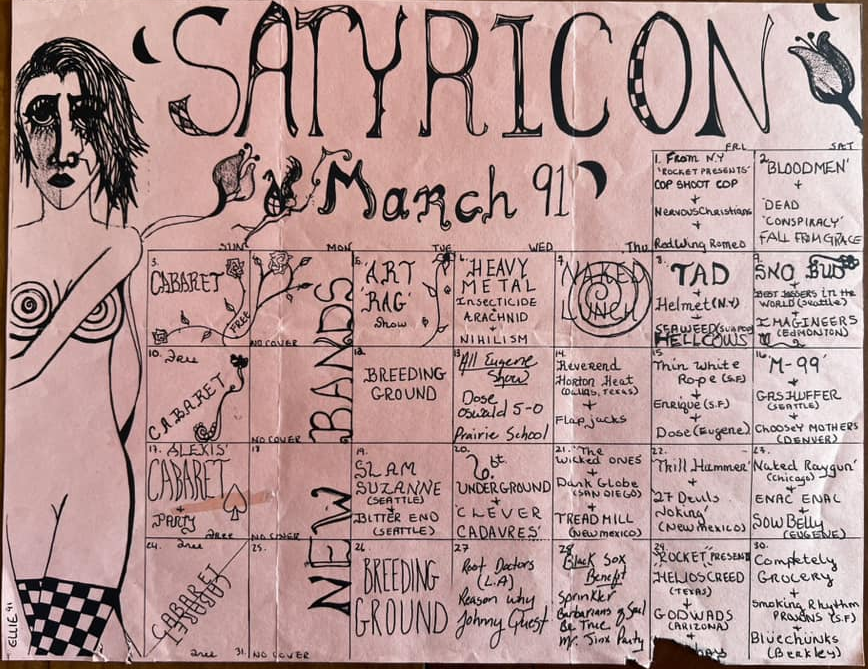 SATYRICON
March 91
FRI. SAT
1. From N.Y
'ROCKET PRESENTS'
COP SHOOT COP
+
Nervous Christians
+
Rod Wing Romeo
2. 'BLOODMEN'
+
'DEAD
'CONSPIRACY'
FALL FROM GRACE
SUN MON TUE WED Thu
3.
CABARET
FREE
NO COVER
NEW BANDS
5. 'ART
'RAG'
Show
6. 'HEAVY
METAL
INSECTICIDE
+
ARACHNID
+
NIHILISM
7. NAKED
LUNCH
8. TAD
+
Helmet (N.Y)
+
SEAWEED
HELLCOWS
9.
SNO BUD
+
BEST KISSERS IN the
WORLD (Seattle)
+
IMAGINEERS
(EDMONTON)
10. Free
CABARET
NO COVER
12.
BREEDING
GROUND
13. All Eugene
Show
Dose
Oswald 5-0
Prairie School
14.
Reverend
Horton Heat
(DALLAS, TEXAS)
+
Flapjacks
15.
Thin White
Rope (S.F)
+
Enrique (S.F.)
+
Dose (Eugene)
16.
'M-99'
+
GAS HUFFER
(SEATTLE)
+
CHOOSEY MOTHERS
(DENVER)
17. ALEXIS'
CABARET
+
PARTY
Free
18
NO COVER
19.
SLAM
SUZANNE
(SEATTLE)
+
BITTER END
(SEATTLE)
20.
UNDERGROUND
+
'CLEVER
CADAVRES'
21. 'The
Wicked ONES'
+
Dark Globe
(SAN DIEGO)
+
TREADMILL
(New mexico)
22.
'Thrill Hammer'
+
'27 Devils
Joking'
(New mexico)
23.
'Naked Raygun'
(Chicago)
+
ENAC ENAC
+
SOW BELLY
(EUGENE)
24. Free
CABARET
CABARET
Free 31.
25.
NO COVER
26.
BREEDING
GROUND
27
Root Doctors
(L.A)
Reason why
Johnny Guest
28
Black Sox
Benefit
Sprinkler
Barbarians of Soul
Be True
Mr. Jinx Party
29.
'ROCKET' PRESENTS
'HELIOS CREED
(TEXAS)
+
GODWADS
(ARIZONA)
+
30.
Completely
GROCERY
+
Smoking Rhythm
PRAWNS (S.F)
+
Bluechunks
(Berkley)
ELLIE 91